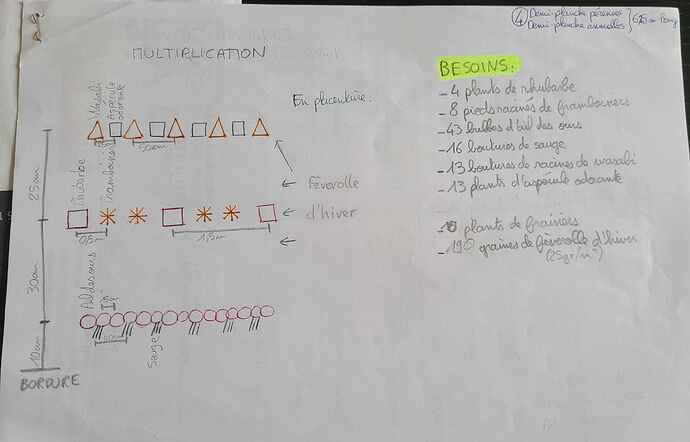 ④ Demi-planche pérennes
Demi-planche annuelles
MULTIPLICATION
BESOINS:
- 4 plants de rhubarbe
- 8 pieds racinés de framboisiers
- 43 bulbes d'ail des ours
- 16 boutures de sauge
- 13 boutures de racines de wasabi
- 13 plants d'aspérule odorante
plants de fraisiers
- 190 graines de féverolle d'hiver
(25gr/m²)
En placentaire.
Wasabi
Aspérule
odorante
50cm
25cm
Féverolle
d'hiver
Rhubarbe
Framboisier
0,5m
1,5m
30cm
Ail des ours
10cm
Sauge
BORDURE